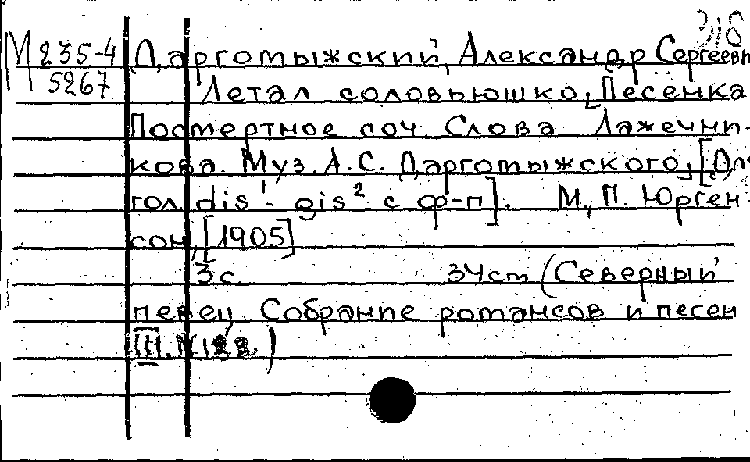 318
М 235-4 Даргомыжский, Александр Сергеевич
5267 Летал соловьюшко, Песенка
Посмертное соч. Слова Лажечни-
кова. Муз. А.С. Даргомыжского, [Для
гол. dis¹ - gis² с ф-п]. М., П. Юрген-
сон, [1905]
3с. 34cm (Северный
певец. Собрание романсов и песен
III.